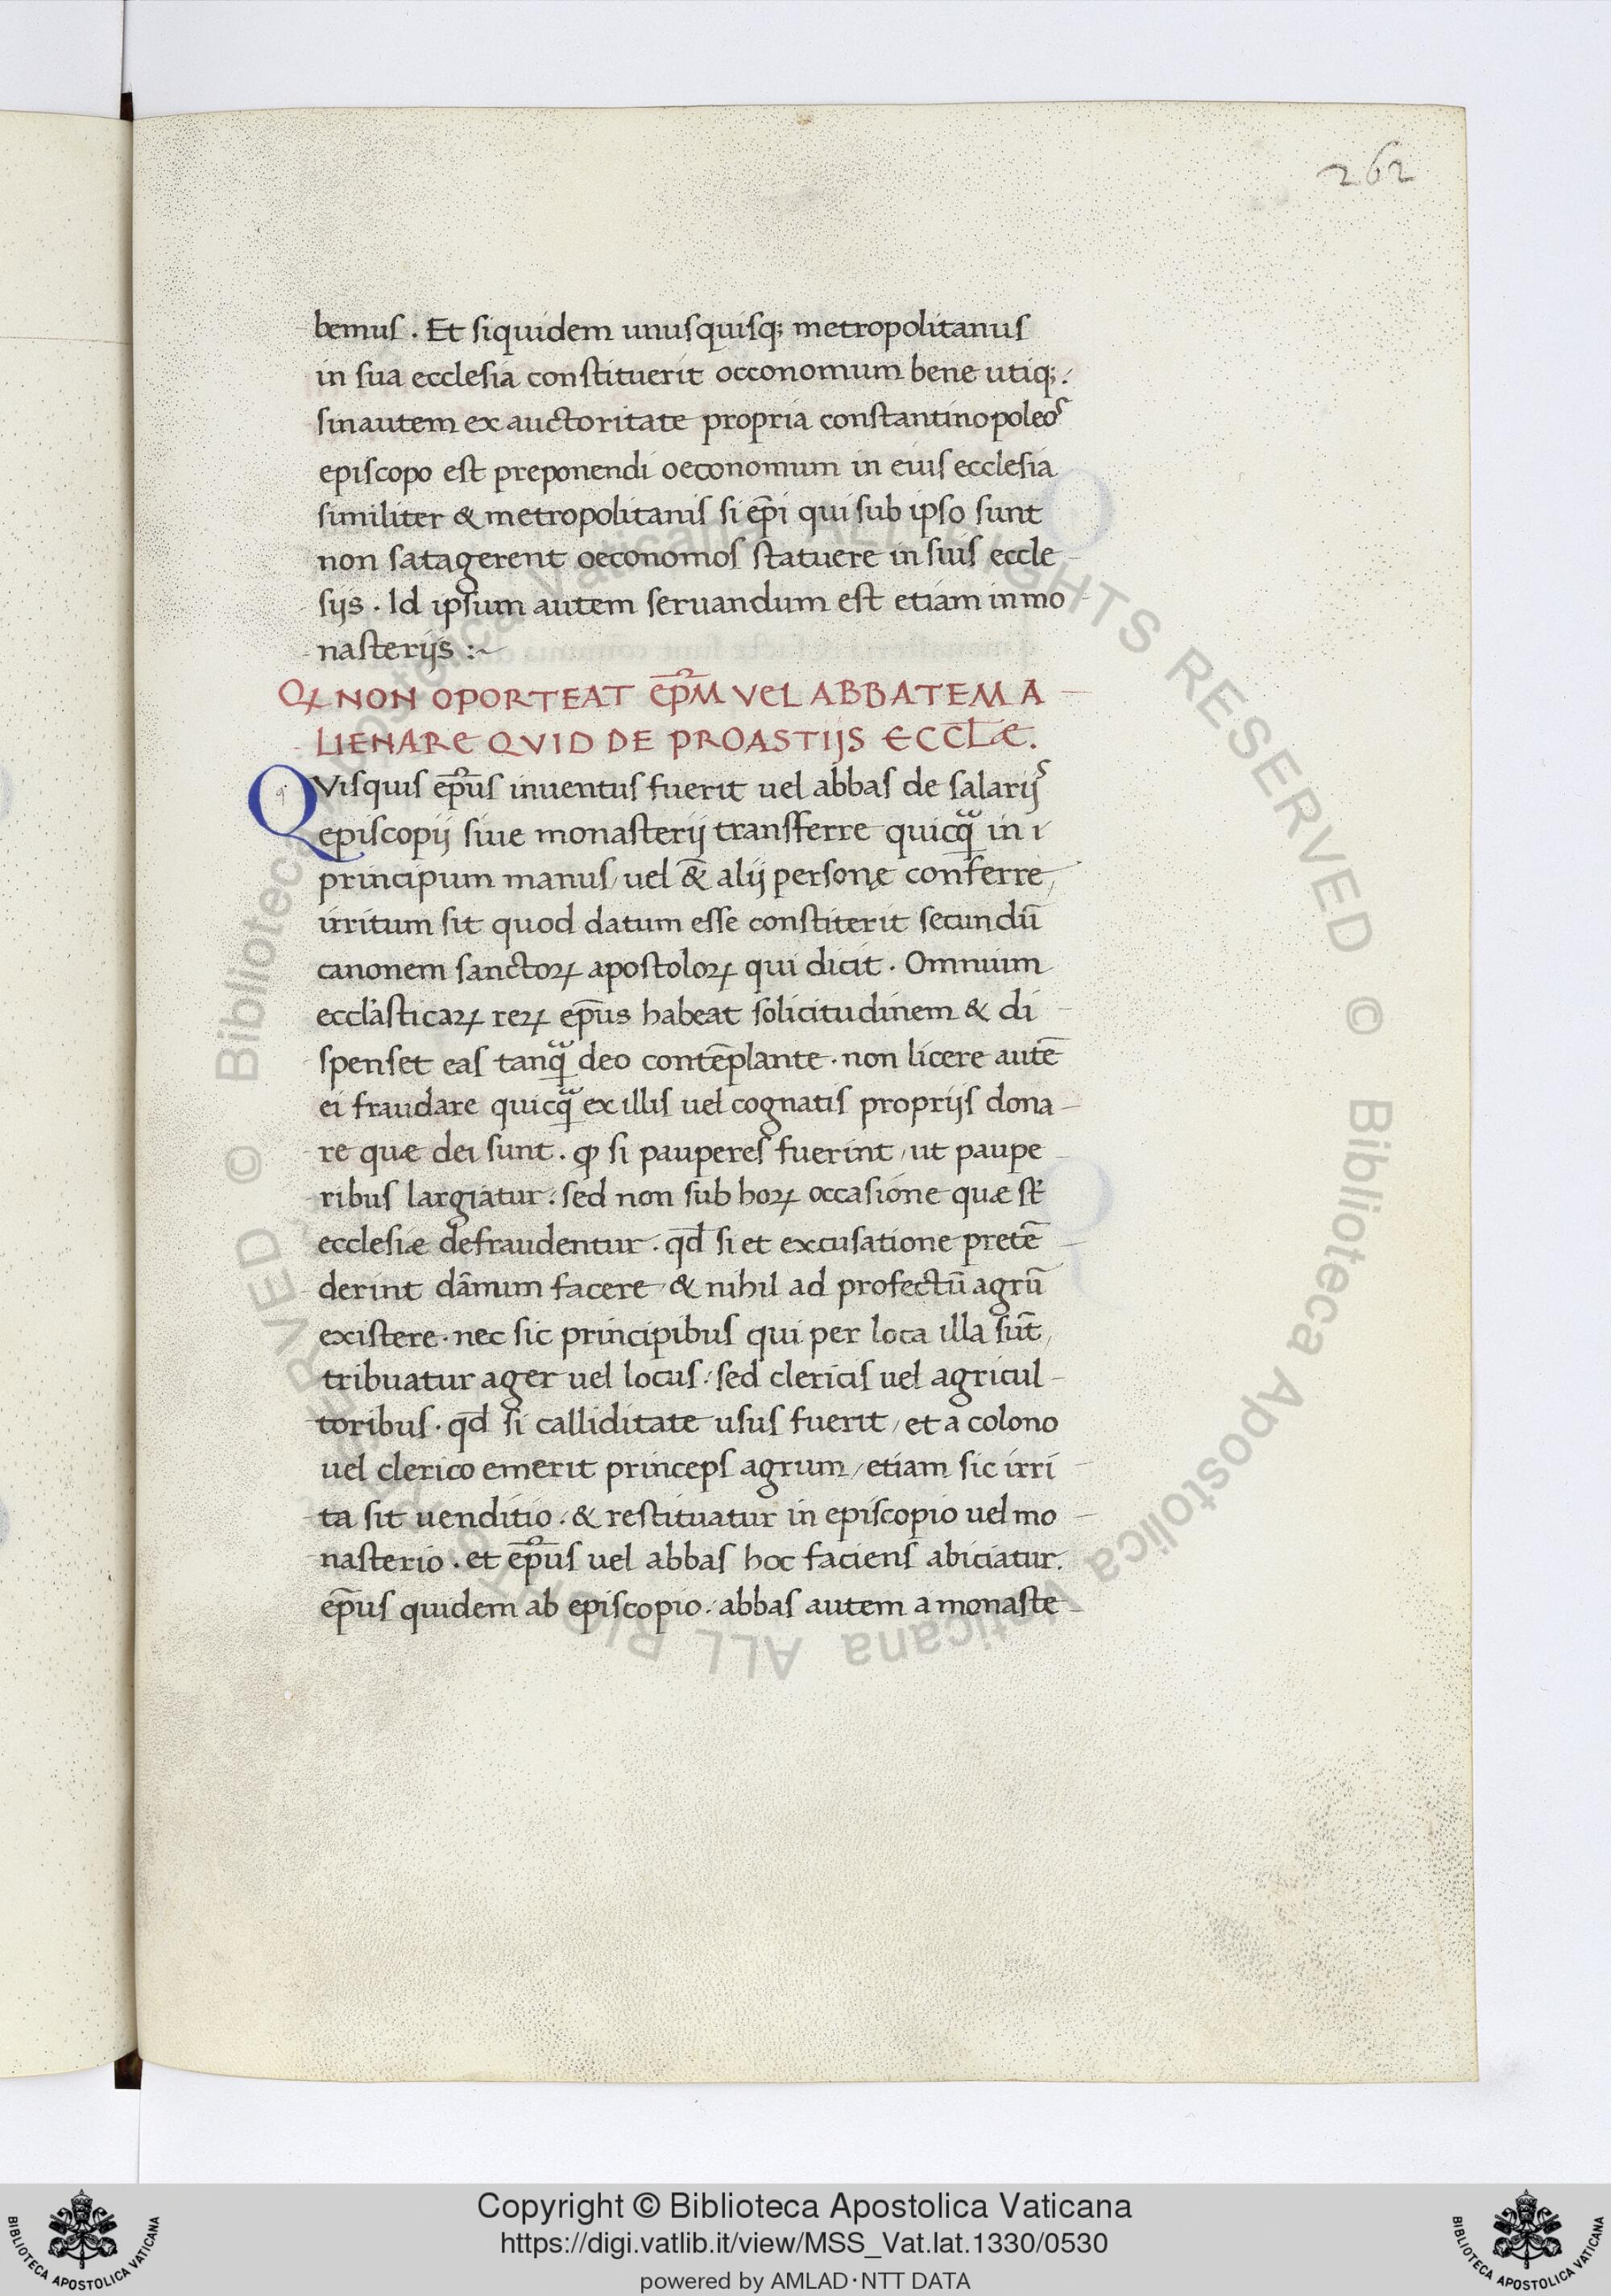 262
bemus . Et siquidem unusquisq; metropolitanus
in sua ecclesia constituerit occonomum bene utiq; .
sinautem ex auctoritate propria constantinopoleos
episcopo est preponendi oeconomum in eius ecclesia
similiter & metropolitanis si ep̅i qui sub ipso sunt
non satagerent oeconomos statuere in suis eccle
sijs . Id ipsum autem seruandum est etiam in mo
nasterijs :~
Qꝝ NON OPORTEAT EP̅M VEL ABBATEM A
LIENARE QVID DE PROASTIJS ECCL̅Æ .
QVisquis ep̅us inuentus fuerit uel abbas de salarijs
episcopij siue monasterij transferre quicq̃ in
principum manus, uel & alij personę conferre,
irritum sit quod datum esse constiterit secundu̅
canonem sanctoꝝ apostoloꝝ qui dicit . Omnium
eccl'asticaꝝ reꝝ ep̅us habeat solicitudinem & di
spenset eas tanq̃ deo conte̅plante . non licere aute̅
ei fraudare quicq̃ ex illis uel cognatis proprijs dona
re quæ dei sunt . ꝙ si pauperes fuerint, ut paupe
ribus largiatur . sed non sub hoꝝ occasione quæ st̅
ecclesiæ defraudentur . qd̅ si et excusatione prete̅
derint da̅mum facere, & nihil ad profectu̅ agru̅
existere . nec sic principibus qui per loca illa su̅t,
tribuatur ager uel locus . sed clericis uel agricul
toribus . qd̅ si calliditate usus fuerit, et a colono
uel clerico emerit princeps agrum, etiam sic irri
ta sit uenditio . & restituatur in episcopio uel mo
nasterio . et ep̅us uel abbas hoc faciens abiciatur .
ep̅us quidem ab episcopio . abbas autem a monaste
© Biblioteca Apostolica Vaticana ALL RIGHTS RESERVED © Biblioteca Apostolica Vaticana ALL RIGHTS RESERVED
Copyright © Biblioteca Apostolica Vaticana
https://digi.vatlib.it/view/MSS_Vat.lat.1330/0530
powered by AMLAD·NTT DATA
BIBLIOTECA APOSTOLICA VATICANA
BIBLIOTECA APOSTOLICA VATICANA